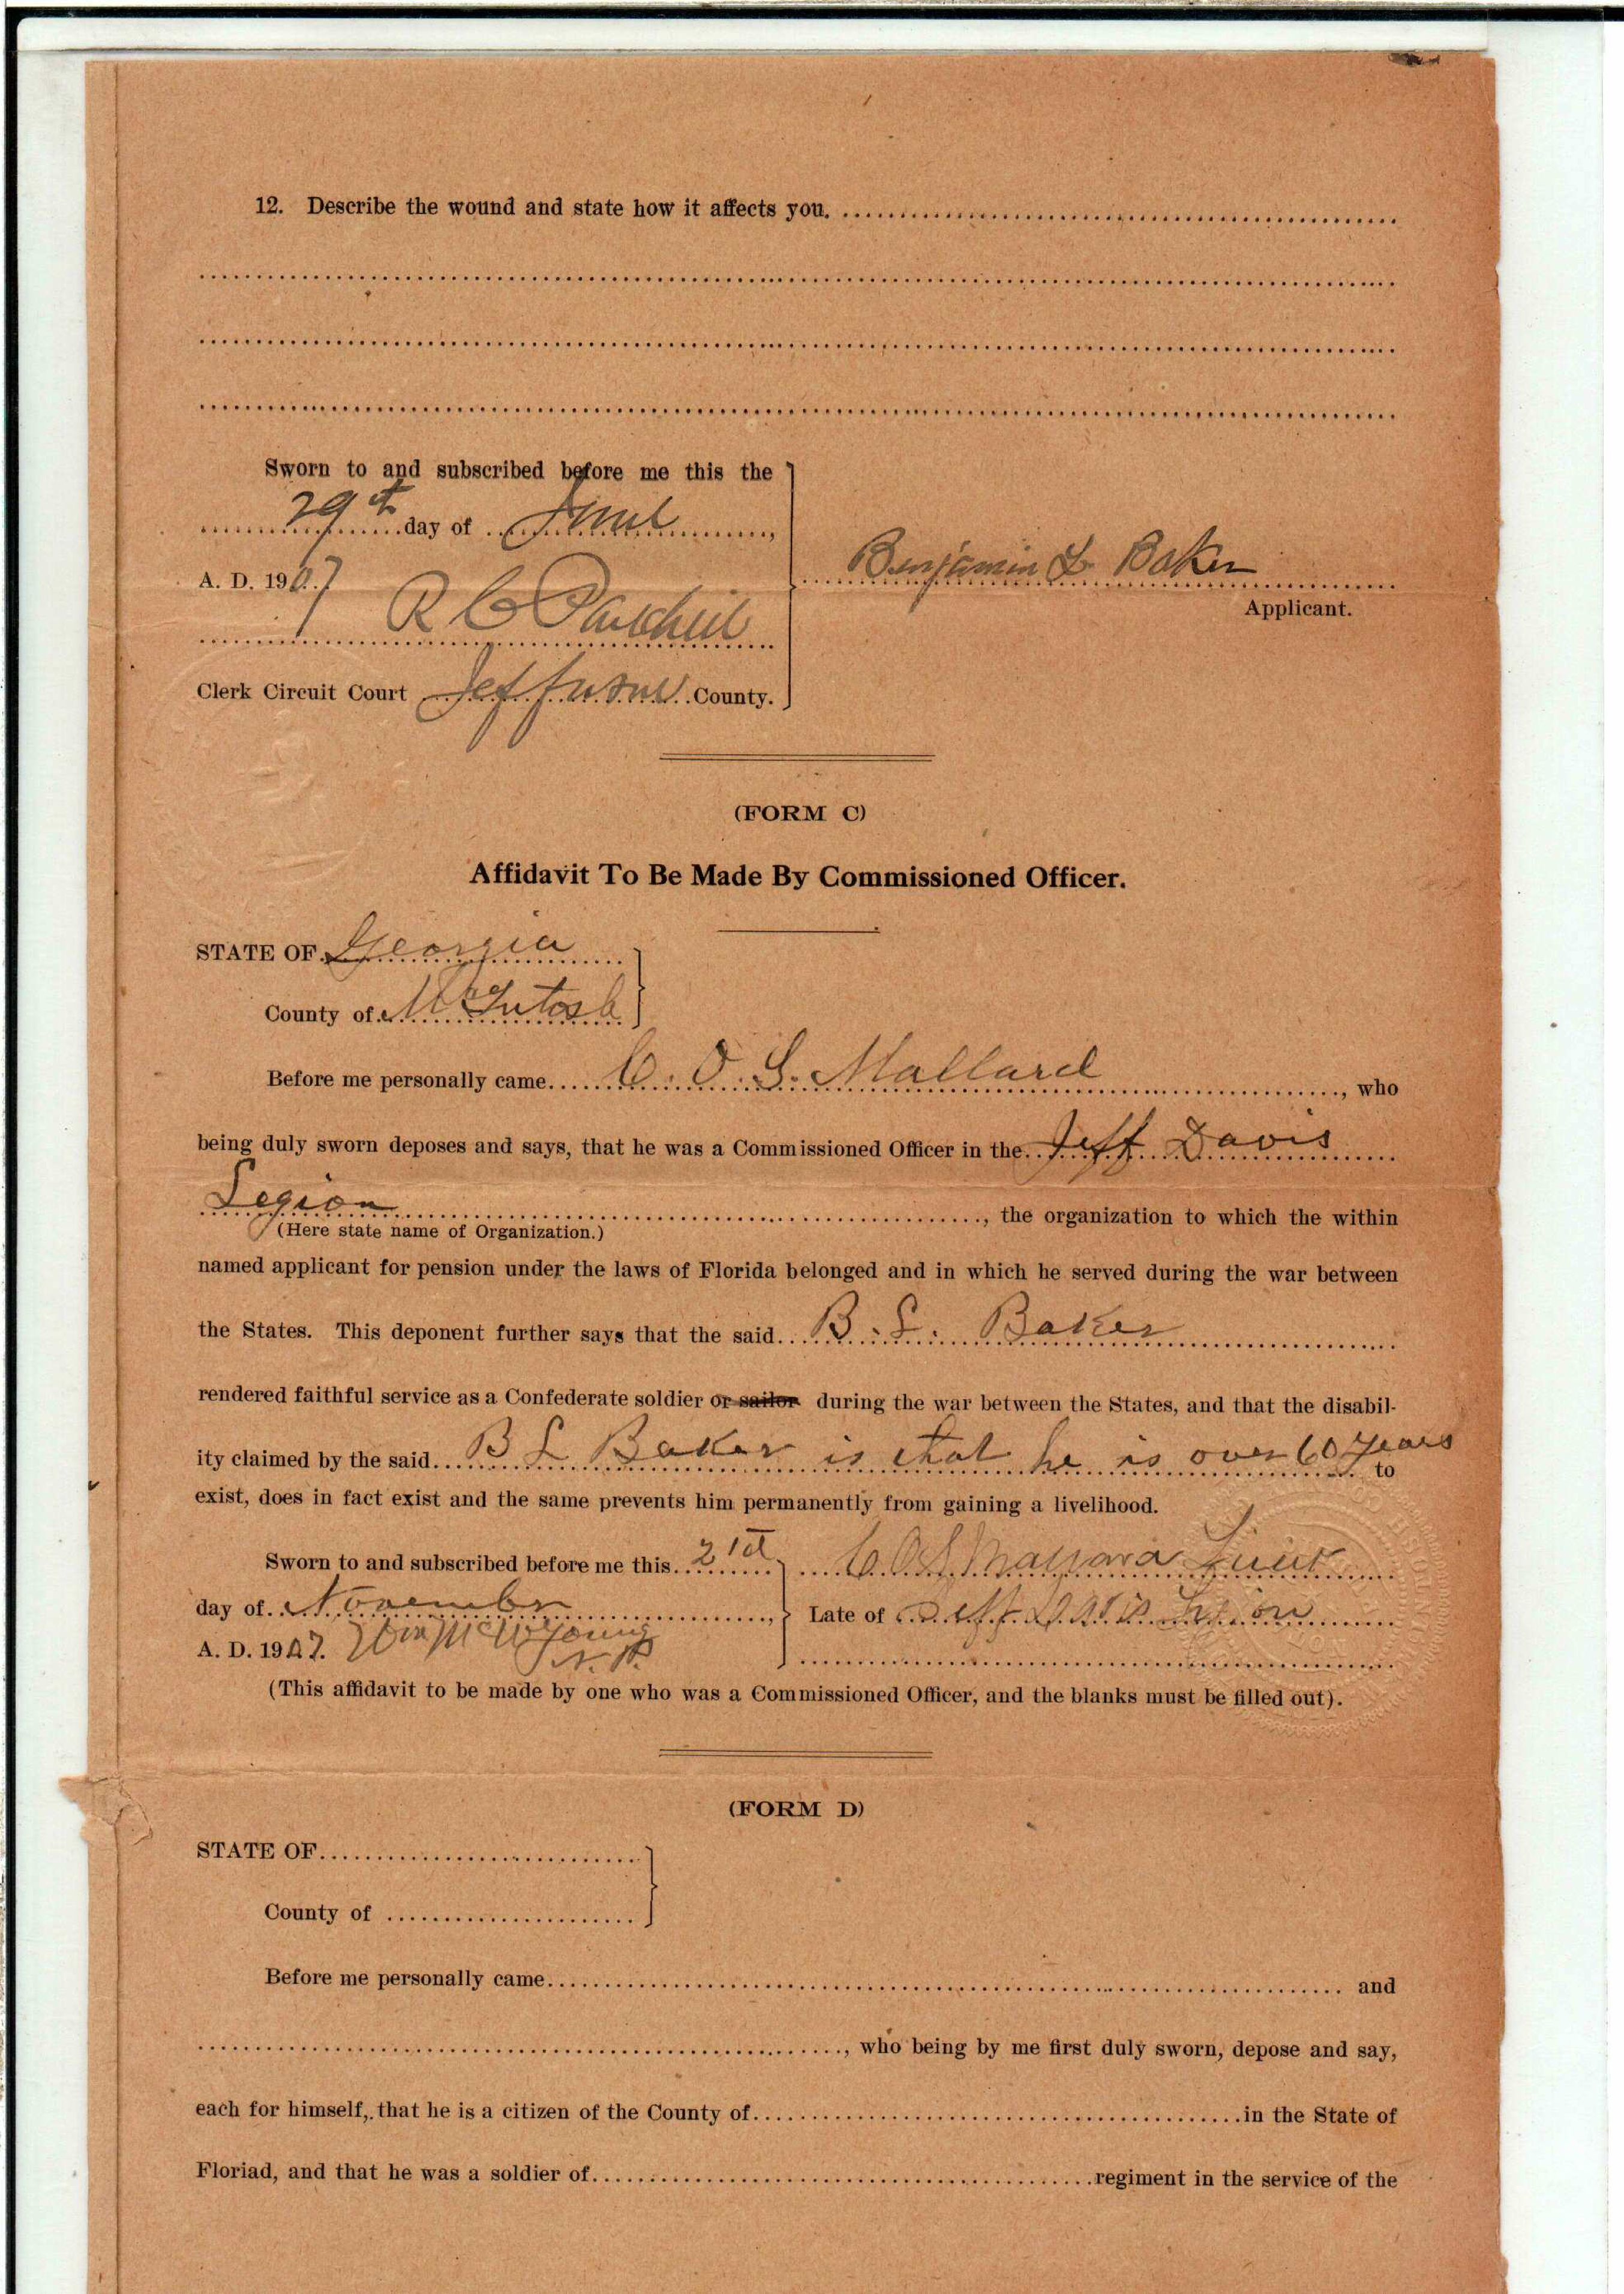 12. Describe the wound and state how it affects you.
Sworn to and subscribed before me this the
29th day of June,
A. D. 1907
R C Parkhill
Benjamin L. Baker
Applicant.
Clerk Circuit Court Jefferson County.
(FORM C)
Affidavit To Be Made By Commissioned Officer.
STATE OF Georgia
County of McIntosh
Before me personally came C. O. S. Mallard, who
being duly sworn deposes and says, that he was a Commissioned Officer in the Jeff Davis
Legion, the organization to which the within
(Here state name of Organization.)
named applicant for pension under the laws of Florida belonged and in which he served during the war between
the States. This deponent further says that the said B. L. Baker
rendered faithful service as a Confederate soldier or sailor during the war between the States, and that the disabil-
ity claimed by the said B L Baker is that he is over 60 years to
exist, does in fact exist and the same prevents him permanently from gaining a livelihood.
Sworn to and subscribed before me this 21st
C O S Mallard Lieut
day of November,
Late of Jeff Davis Legion
A. D. 1907. Wm McW Young
N. P.
(This affidavit to be made by one who was a Commissioned Officer, and the blanks must be filled out).
(FORM D)
STATE OF
County of
Before me personally came and
, who being by me first duly sworn, depose and say,
each for himself, that he is a citizen of the County of in the State of
Floriad, and that he was a soldier of regiment in the service of the